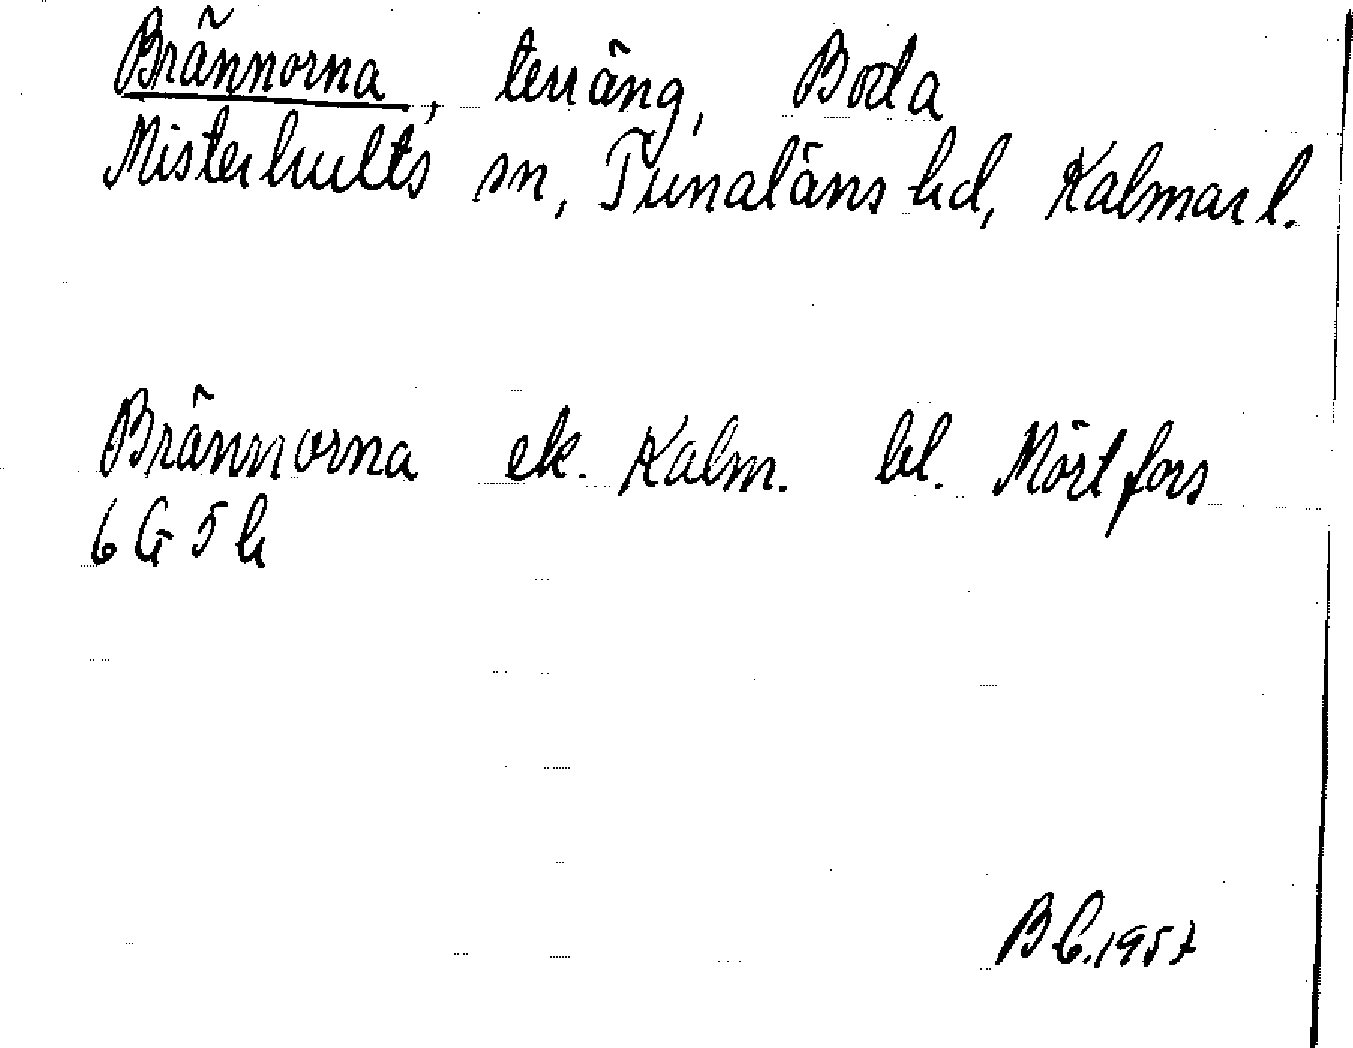 Brännorna, terräng, Boda
Misterhults sn, Tunaläns hd, Kalmar l.
Brännorna ek. Kalm. bl. Mörtfors
6 G 5 h
B C. 1957